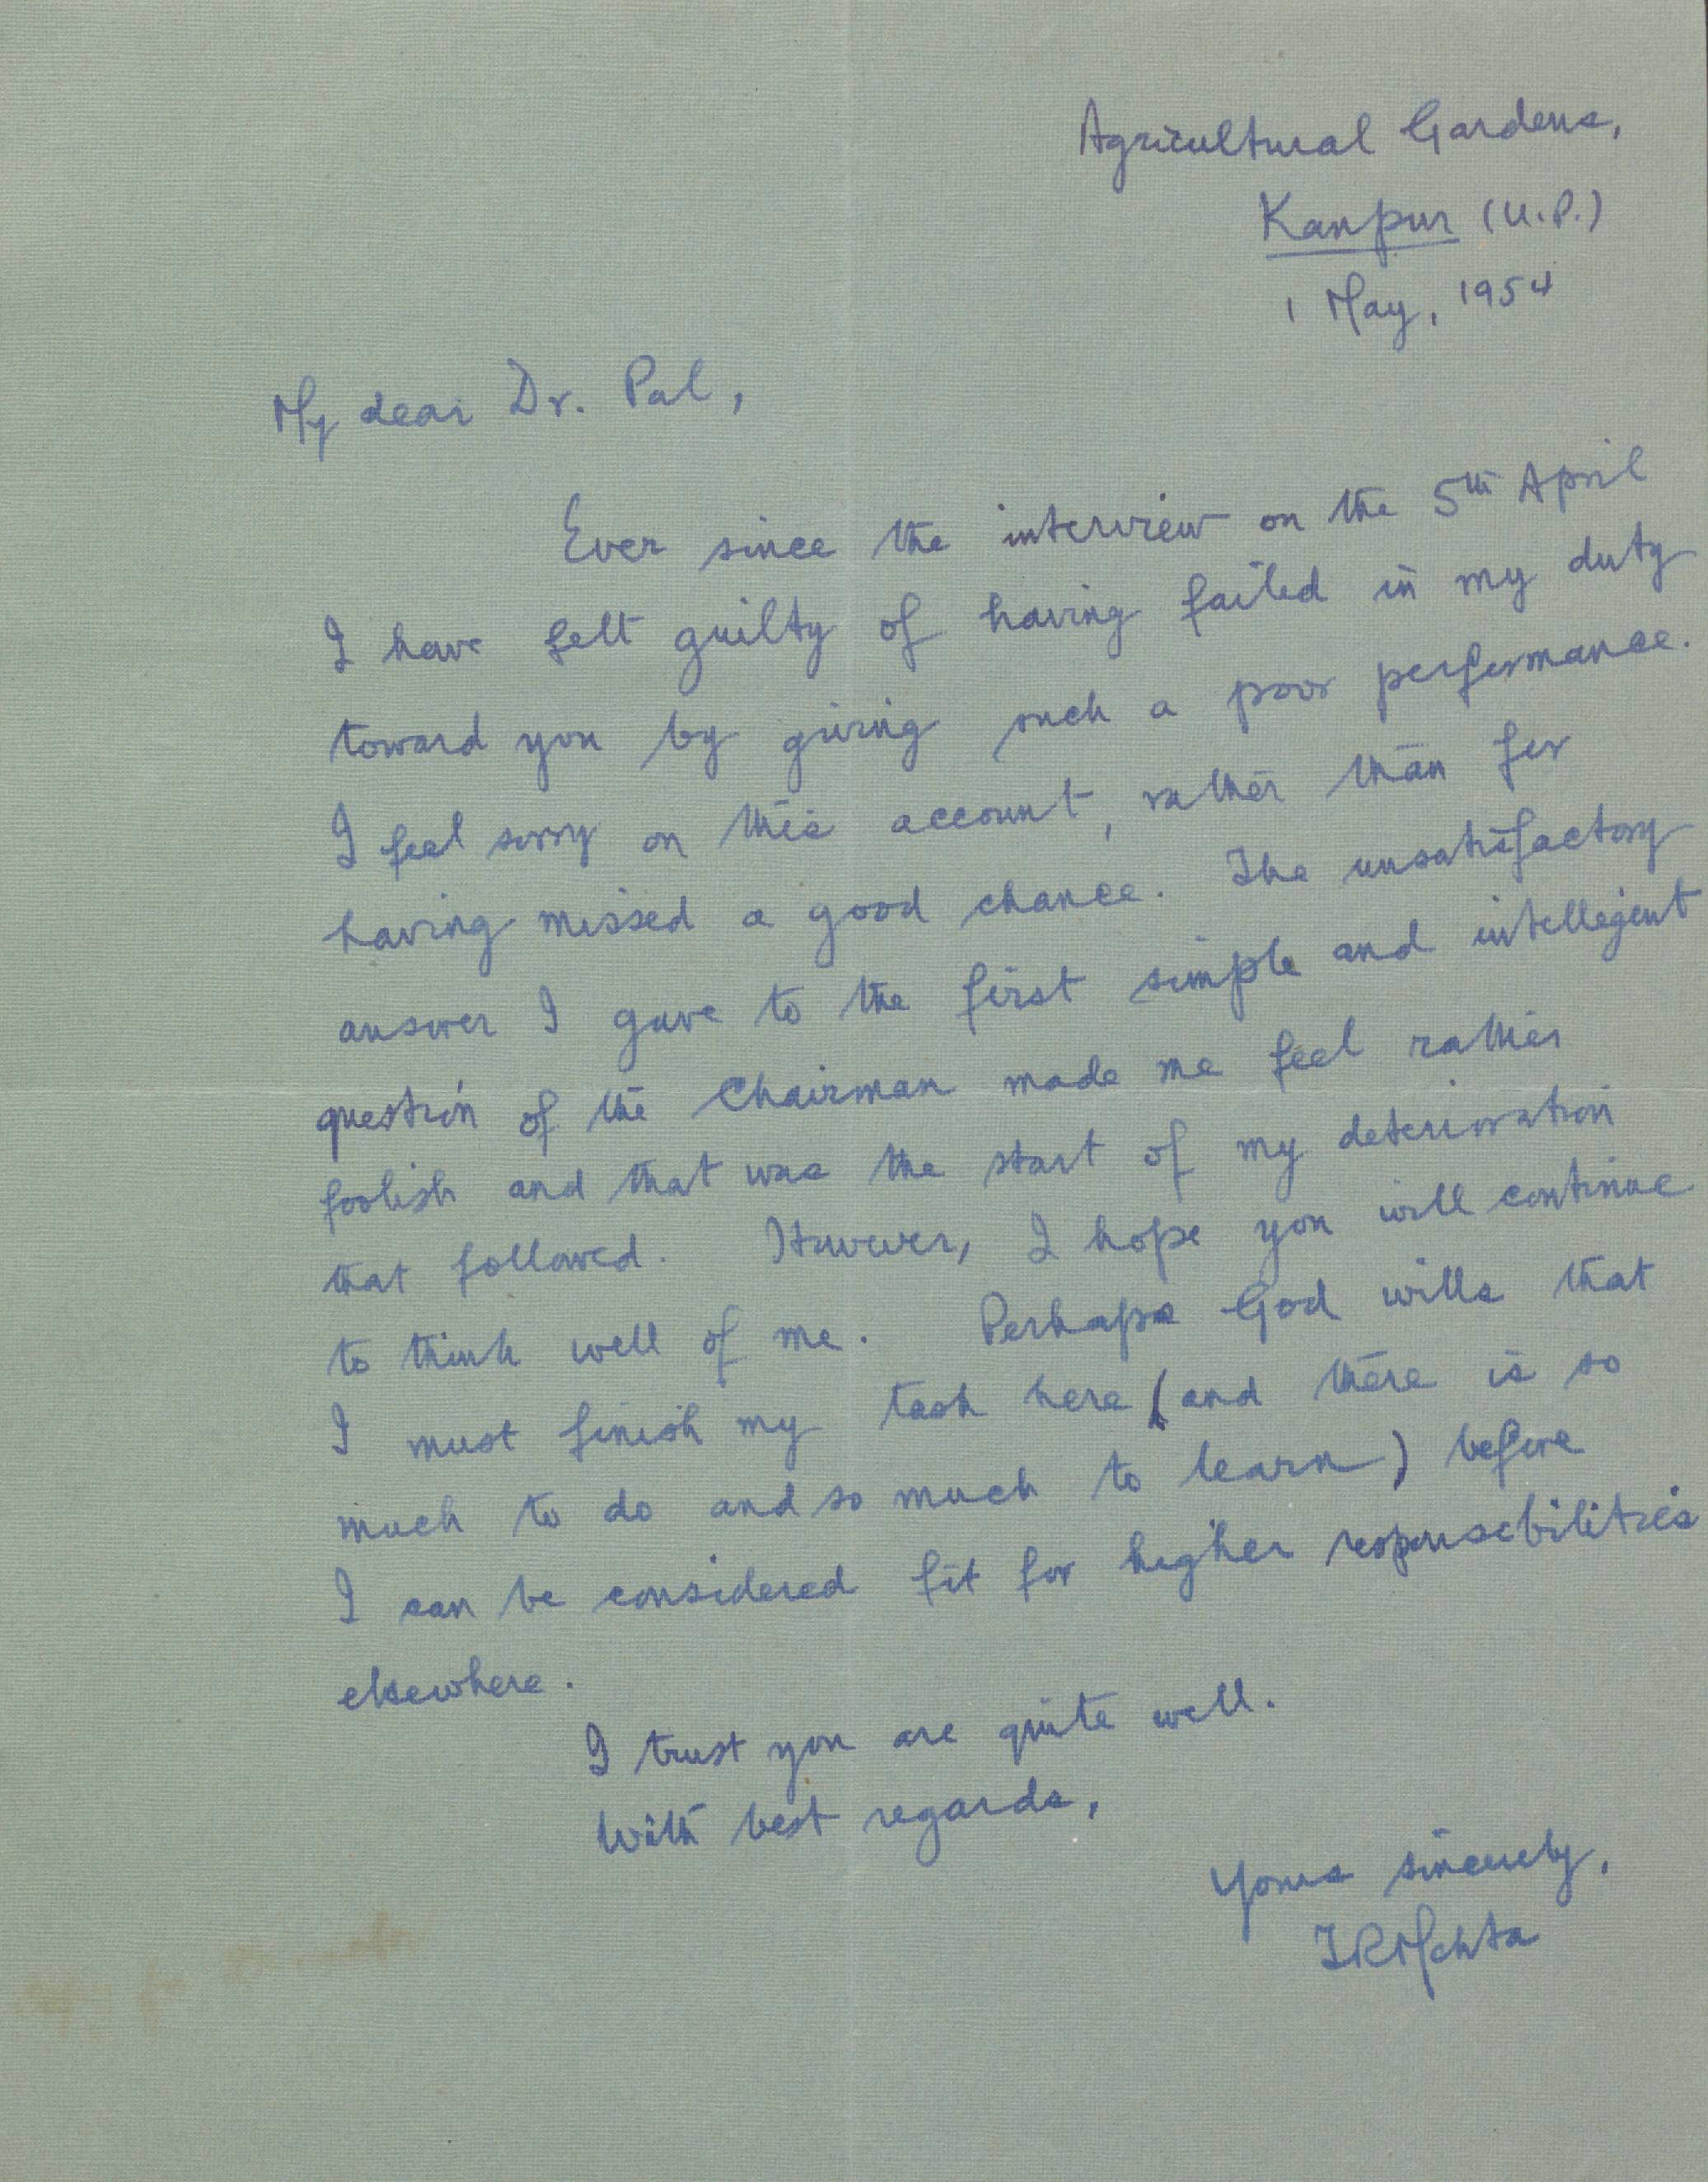 Agricultural Gardens,
Kanpur (U.P.)
1 May, 1954
My dear Dr. Pal,
Ever since the interview on the 5th April
I have felt guilty of having failed in my duty
toward you by giving such a poor performance.
I feel sorry on this account, rather than for
having missed a good chance. The unsatisfactory
answer I gave to the first simple and intellegent
question of the Chairman made me feel rather
foolish and that was the start of my deterioration
that followed. However, I hope you will continue
to think well of me. Perhaps God wills that
I must finish my task here (and there is so
much to do and so much to learn) before
I can be considered fit for higher responsibilities
elsewhere.
I trust you are quite well.
With best regards,
Yours sincerely,
TRMehta